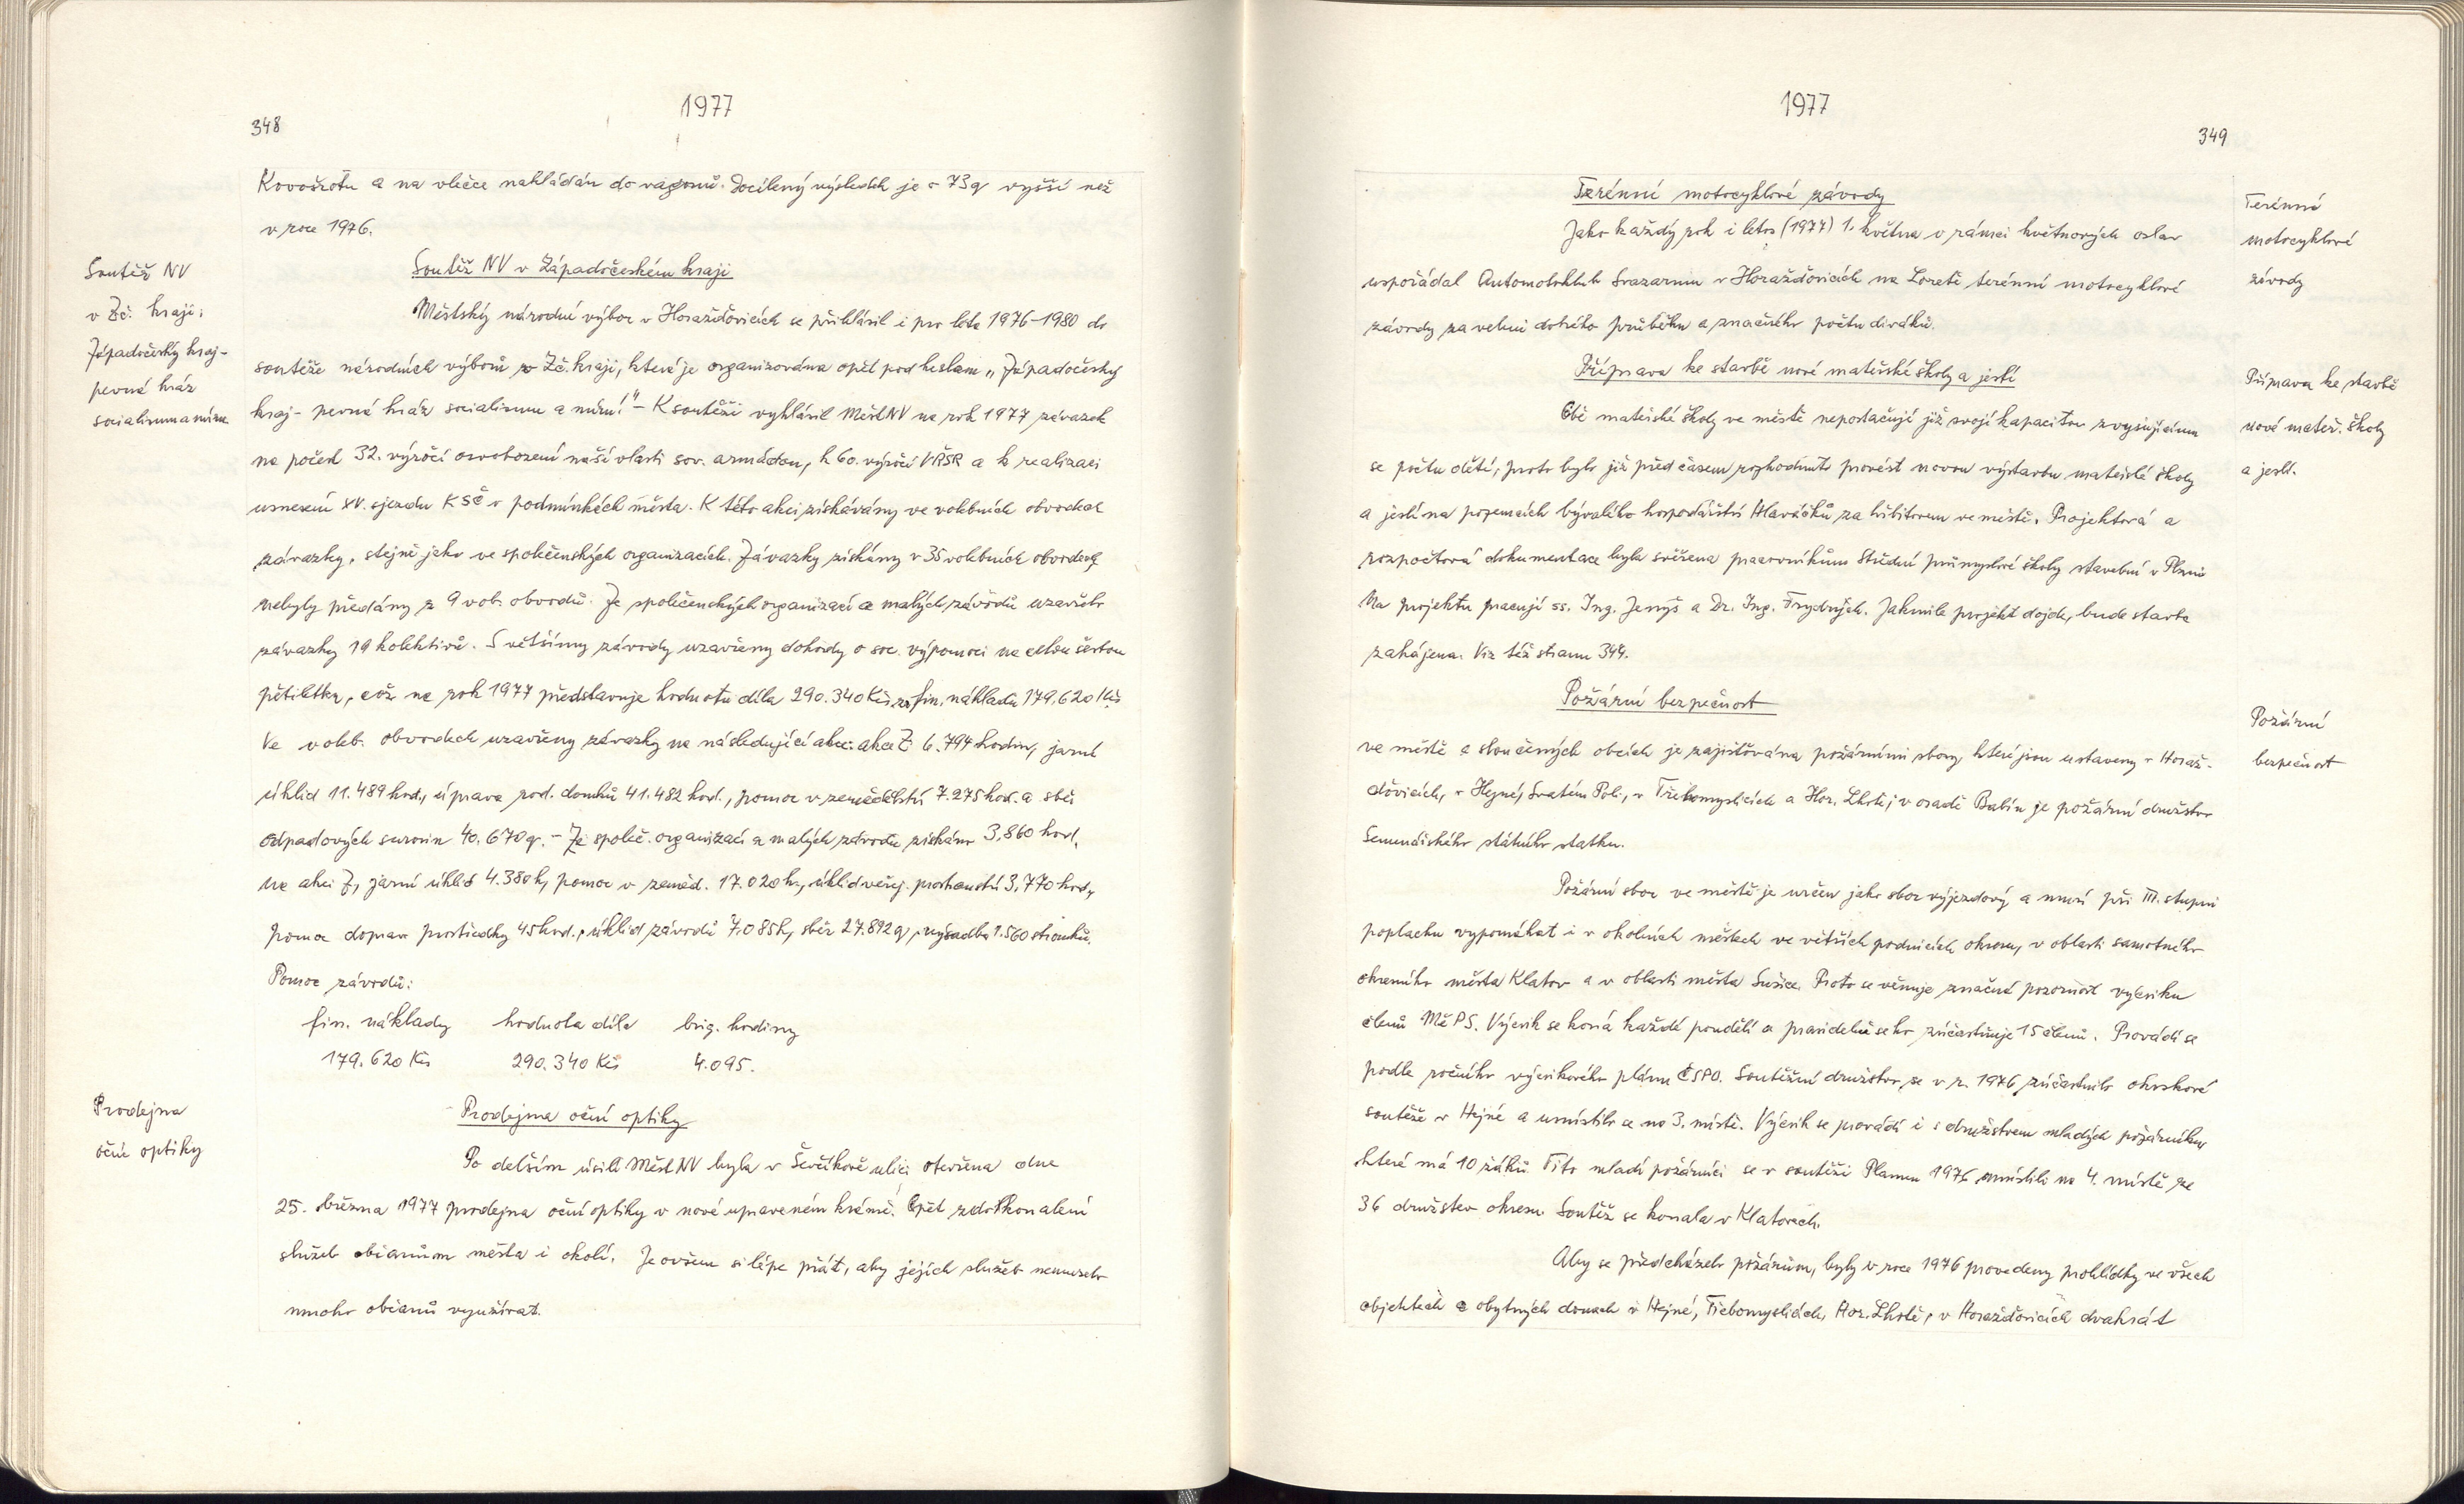 1977
348
Kovošrotu a na vlečce nakládán do vagonů. Docílený výsledek je o 73 q vyšší než
v roce 1976.
Soutěž NV
v Zč. kraji:
Západočeský kraj-
pevná hráz
socialismu a míru
Soutěž NV v Západočeském kraji
Městský národní výbor v Horažďovicích se přihlásil i pro léta 1976-1980 do
soutěže národních výborů v Zč. kraji, která je organizována opět pod heslem „Západočeský
kraj - pevná hráz socialismu a míru!" - K soutěži vyhlásil MěstNV na rok 1977 závazek
na počest 32. výročí osvobození naší vlasti sov. armádou, k 60. výročí VŘSR a k realizaci
usnesení XV. sjezdu KSČ v podmínkách města. K této akci získávány ve volebních obvodech
závazky, stejně jako ve společenských organizacích. Závazky získány v 35 volebních obvodech,
nebyly předány z 9 vol. obvodů. Ze společenských organizací a malých závodů uzavřelo
závazky 19 kolektivů. S většímy závody uzavřeny dohody o soc. výpomoci na celou šestou
pětiletku, což na rok 1977 představuje hodnotu díla 290.340 Kčs, fin. nákladu 179.620 Kčs
Ve voleb. obvodech uzavřeny závazky na následující akce: akce Z 6.794 hodin, jarní
úklid 11.489 hod., úprava rod. domků 41.482 hod., pomoc v zemědělství 7.275 hod. a sběr
odpadových surovin 40.670 q. - Ze společ. organizací a malých závodů získáno 3.860 hod.
na akci Z, jarní úklid 4.380 h, pomoc v zeměd. 17.020 h., úklid veřej. prostranství 3.770 hod.,
pomoc doprav. prostředky 45 hod., úklid závodů 7.085 h, sběr 27.892 q, výsadba 1.560 stromků.
Pomoc závodů:
fin. náklady hodnota díla brig. hodiny
179.620 Kčs 290.340 Kčs 4.095.
Prodejna
oční optiky
Prodejna oční optiky
Po delším úsilí MěstNV byla v Ševčíkově ulici otevřena dne
25. března 1977 prodejna oční optiky v nově upraveném krámě. Opět zdokonalení
služeb občanům města i okolí. Je ovšem si lépe přát, aby jejích služeb nemuselo
mnoho občanů využívat.
1977
349
Terénní motocyklové závody
Terénní
motocyklové
závody
Jako každý rok i letos (1977) 1. května v rámci květnových oslav
uspořádal Automotoklub Svazarmu v Horažďovicích na Loretě terénní motocyklové
závody za velmi dobrého průběhu a značného počtu diváků.
Příprava ke stavbě nové mateřské školy a jeslí
Příprava ke stavbě
nové mateř. školy
a jeslí.
Obě mateřské školy ve městě nepostačují již svojí kapacitou zvyšujícímu
se počtu dětí, proto bylo již před časem rozhodnuto provést novou výstavbu mateřské školy
a jeslí na pozemcích bývalého hospodářství Hlaváčků za hřbitovem ve městě. Projektová a
rozpočtová dokumentace byla svěřena pracovníkům Střední průmyslové školy stavební v Plzni
Na projektu pracují ss. Ing. Jenyš a Dr. Ing. Frydrych. Jakmile projekt dojde, bude stavba
zahájena. Viz též stranu 344.
Požární bezpečnost
Požární
bezpečnost
ve městě a sloučených obcích je zajišťována požárními sbory, které jsou ustaveny v Horaž-
ďovicích, v Hejné, Svatém Poli, v Třebomyslicích a Hor. Lhotě; v osadě Babín je požární družstvo
Semenářského státního statku.
Požární sbor ve městě je určen jako sbor výjezdový a musí při III. stupni
poplachu vypomáhat i v okolních městech ve větších podnicích okresu, v oblasti samotného
okresního města Klatov a v oblasti města Sušice. Proto se věnuje značná pozornost výcviku
členů MěPS. Výcvik se koná každé pondělí a pravidelně se ho zúčastňuje 15 členů. Provádí se
podle ročního výcvikového plánu ČSPO. Soutěžní družstvo se v r. 1976 zúčastnilo okrskové
soutěže v Hejné a umístilo se na 3. místě. Výcvik se provádí i s družstvem mladých požárníků,
které má 10 žáků. Tito mladí požárníci se v soutěži Plamen 1976 umístili na 4. místě ze
36 družstev okresu. Soutěž se konala v Klatovech.
Aby se předcházelo požárům, byly v roce 1976 provedeny prohlídky ve všech
objektech a obytných domech v Hejné, Třebomyslicích, Hor. Lhotě, v Horažďovicích dvakrát